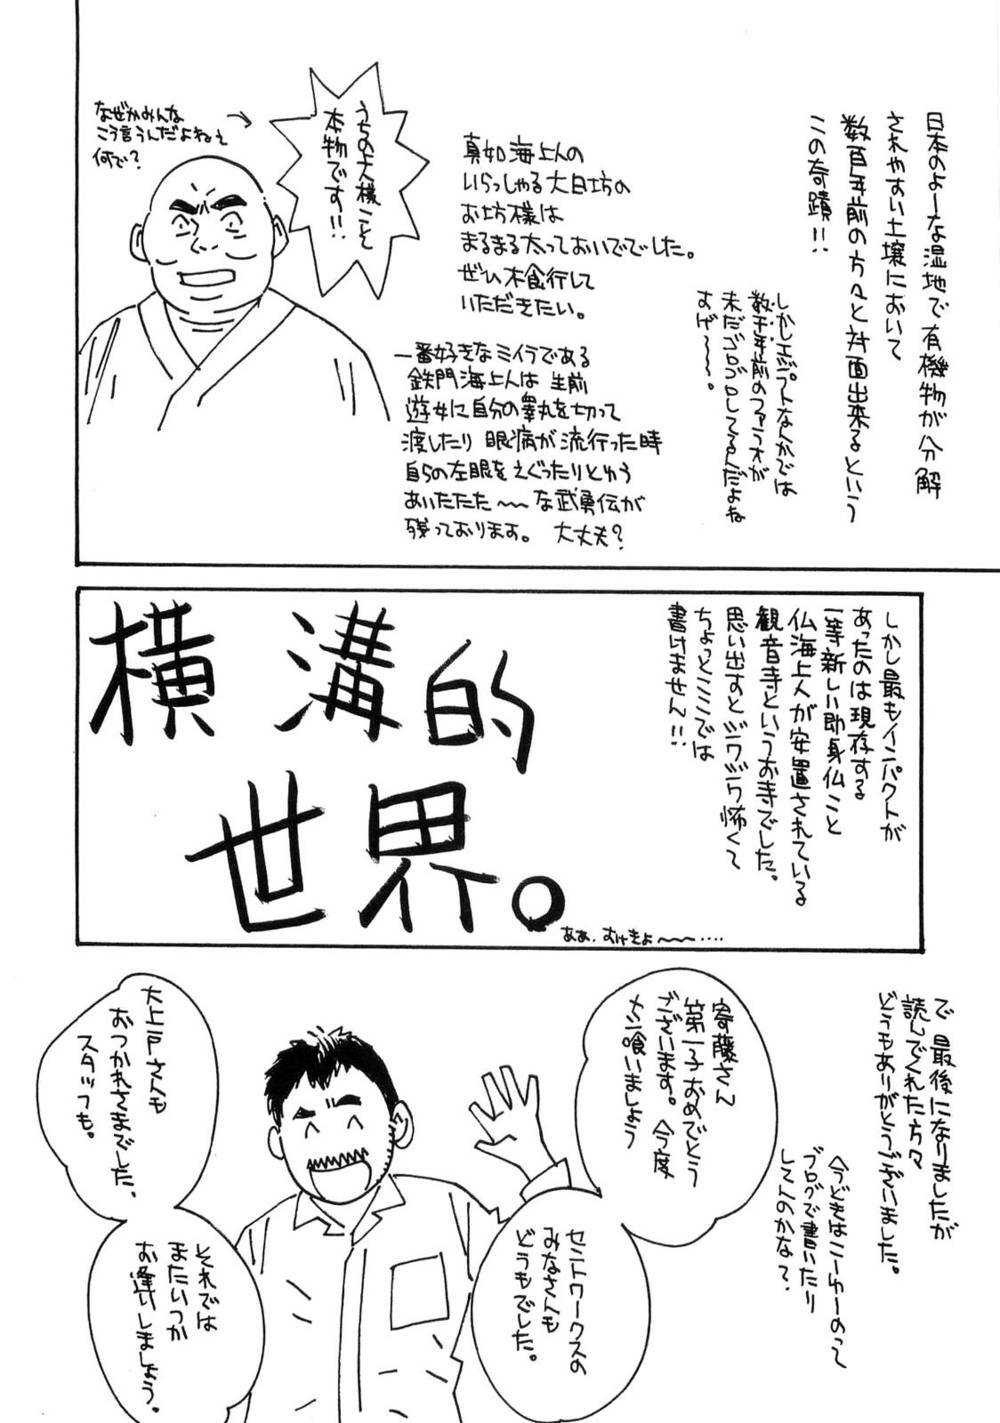 日本のよーな湿地で有機物が分解
されやすい土壌において
数百年前の方々と対面出来るという
この奇蹟!!
しかしエジプトなんかでは
数千年前のファラオが
未だゴロゴロしてるんだよね
すげ〜〜〜。
真如海上人の
いらっしゃる大日坊の
お坊様は
まるまる太っておいででした。
ぜひ木食行して
いただきたい。
うちの上人様こそ
本物です!!
なぜかみんな
こう言うんだよねぇ
何で?
一番好きなミイラである
鉄門海上人は生前
遊女に自分の睾丸を切って
渡したり眼病が流行った時
自らの左眼をえぐったりとゆう
あいたたた〜〜な武勇伝が
残っております。大丈夫?
しかし最もインパクトが
あったのは現存する
一等新しい即身仏こと
仏海上人が安置されている
観音寺というお寺でした。
思い出すとジワジワ怖くて
ちょっとここでは
書けません!!
横溝的
世界。
ああ、むけきよ〜〜....
で最後になりましたが
読んでくれた方々
どうもありがとうございました。
今どきはこーゆーのって
ブログで書いたり
してんのかな?
寄藤さん
第一子おめでとう
ございます。今度
メシ喰いましょう
セントワークスの
みなさんも
どうもでした。
大上戸さんも
おつかれさまでした。
スタッフも。
それでは
またいつか
お逢いしましょう。